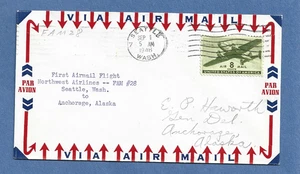 VIA AIR MAIL
FAM 28
SEATTLE
SEP 1
5 AM
1946
WASH.
AIR 8 MAIL
UNITED STATES OF AMERICA
First Airmail Flight
Northwest Airlines -- FAM #28
Seattle, Wash.
to
Anchorage, Alaska
PAR
AVION
PAR
AVION
E. P. Haworth
Gen. Del.
Anchorage
Alaska
VIA AIR MAIL